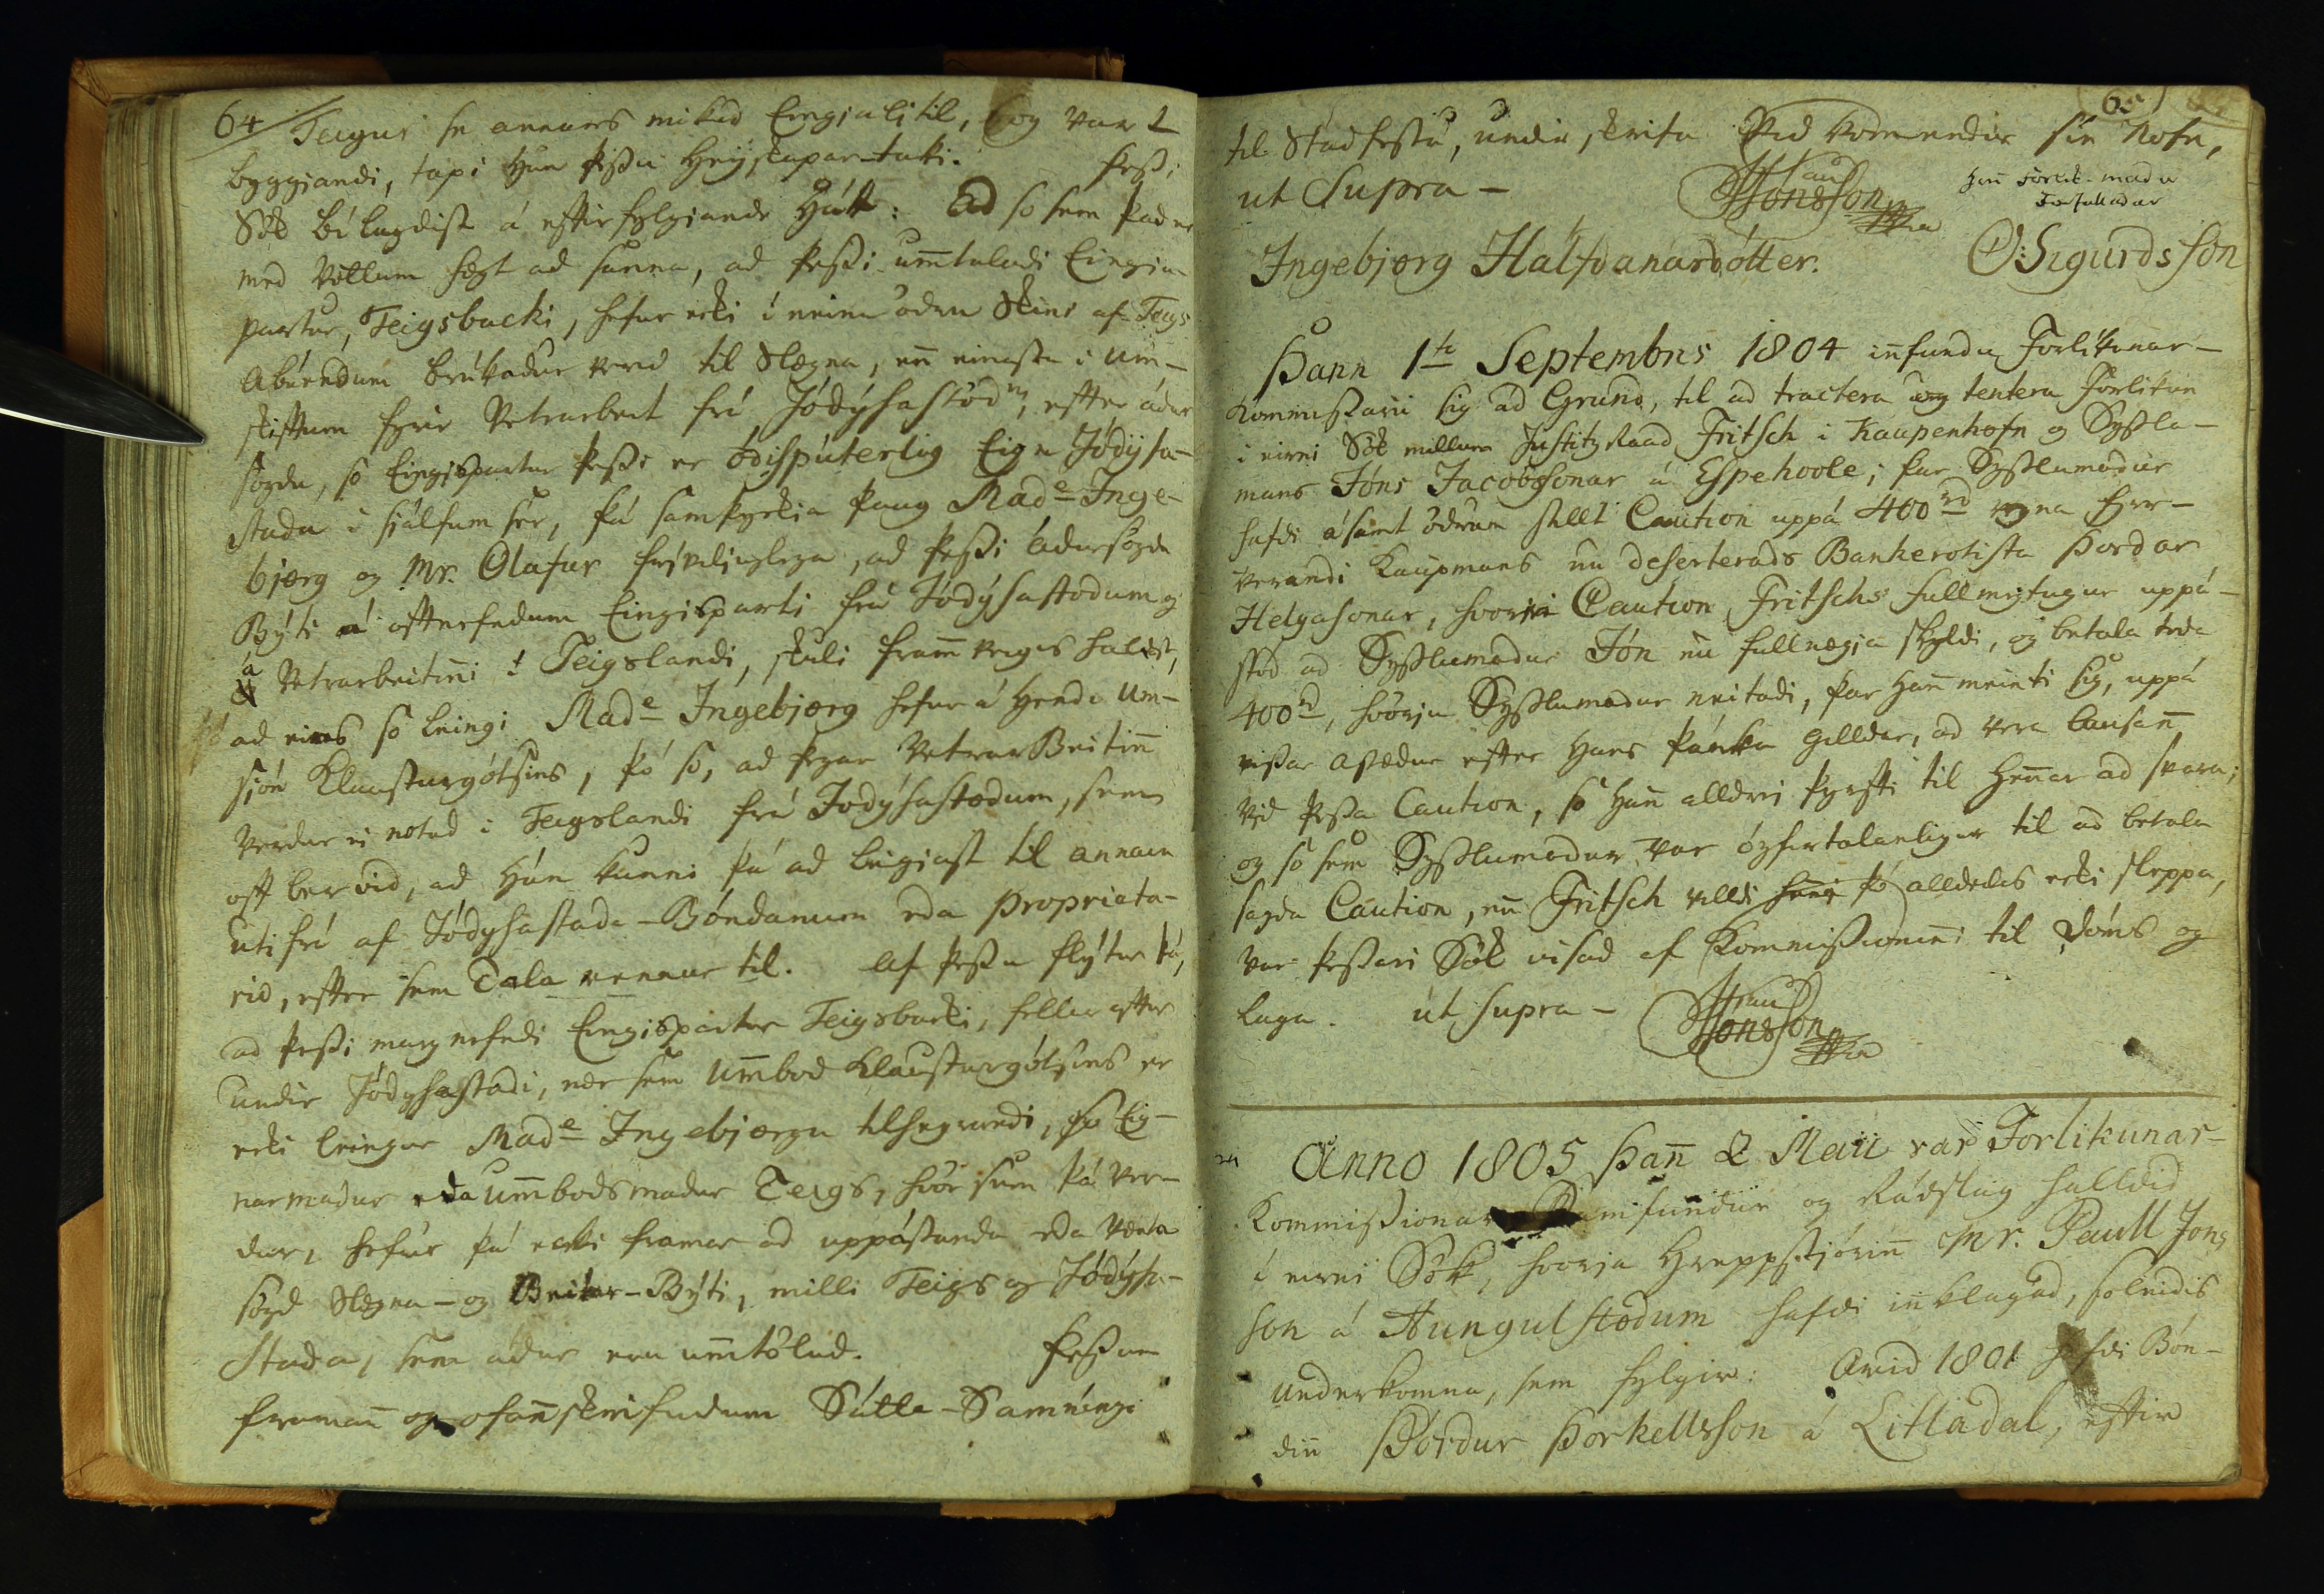 64
Teigur sé annars mikid Eingialitil, og vart
byggiandi, tapi hun þessu Heyskapar-taki. Þessi
Sök bílagdist á eftirfylgiandi Hátt: Ad so sem þad er
med Vottum hægt ad sanna, ad þessi umtaladi Eingia-
partur, Teigsbacki, hefur ecki í neinu ödru Skini af Teigs
Abúendum brúkadur verid til Slægna, enn einasta í um-
skiftum fyrir Vetrarbeit frá Jódýsastödm, eftir ádur
sögdu, so Eingispartur þessi er ódispúterlig Eign Jódýsa-
stada í sjálfum sér, þá samþyckia þaug Made Inge-
biørg og Mr. Olafur frýviljuglega, ad þessi ádursögdu
Býti á eftternefndum Eingisparti frá Jódýsastodum og
á Vetrarbeitinni í Teigslandi, skuli framvegis haldast,
þó ad eins so leingi Made Ingebiørg hefur á Hendi Um-
sión Klausturgótsins, þó so, ad þegar VetrarBeitinn
verdur ei notud i Teigslandi frá Jodýsastodum, sem
oft ber vid, ad Hún kunni þá ad leigiast til annara
utífrá af Jódýsastada-Bóndanum eda Proprieta-
rio, eftir sem Tala rennur til. Af þessu flýtur þá,
ad þessi margnefndi Eingispartur Teigsbacki, fellur aftur
undir Jódýsastadi, nær sem Umbod Klausturgótsins er
ecki leingur Made Ingebiørgu tilheyrandi, so Eig-
narmadur eda Umbodsmadur Teigs, hvör sem þá ver-
dur, hefur þá ecki framar ad uppástanda eda vænta
sögd Slægna- og Beitar-Býti, milli Teigs og Jódýsa-
Stada, sem ádur eru umtölud. Þessum
framan og ofanskrifudum Sátta-Samningi
65
til Stadfestu, undirskrifa Vidkomendur sín Nöfn,
ut Supra -
Jonsson
Ingebjørg Halfdanardótter.
O: Sigurdsson
Þann 1ta Septembris 1804 innfundu Forlíkunar-
Kommissarii sig ad Grund, til ad tractera og tentera Forlíkun
i einni Sök millum Justitz Raad Fritsch i Kaupenhofn og Syslu-
mans Jóns Jacobssonar á Espehoole; þar Syslumadur
hafdi ásamt ödrum stillt Caution uppá 400rd vegna fyrr-
verandi Kaupmans nu deserterads Bankerotista Þordar
Helgasonar, hvorri Caution Fritschs fullmegtugur uppá-
stód ad Syslumadur Jón nú fullnægia skyldi, og betala téda
400rd, hvörju Syslumadur neitadi, þar Hann meinti sig, uppá
vissar Astædur eftir Hans þánka gilldar, ad vera lausann
vid þessa Caution, so Hann alldrei þyrfti til Hennar ad svara;
og so sem Syslumadur var ófortalanligur til ad betala
sagda Caution, enn Fritsch villdi þó alldeles ecki sleppa,
var þessari Sök vísad af Kommissioninni til Dóms og
Laga. ut supra -
Jonsson
Anno 1805 Þann 2 Maii var Forlikunar-
Kommissionar Samfundur og Rádslag halldid
í einni Sök, hvorja Hreppstjórinn Mr. Paull Jons
son á Aungulstødum hafdi innklagad, soleidis
underkomna, sem fylgir: Arid 1801 hafdi Bón-
dinn Þórdur Þorkellsson á Litladal, eftir